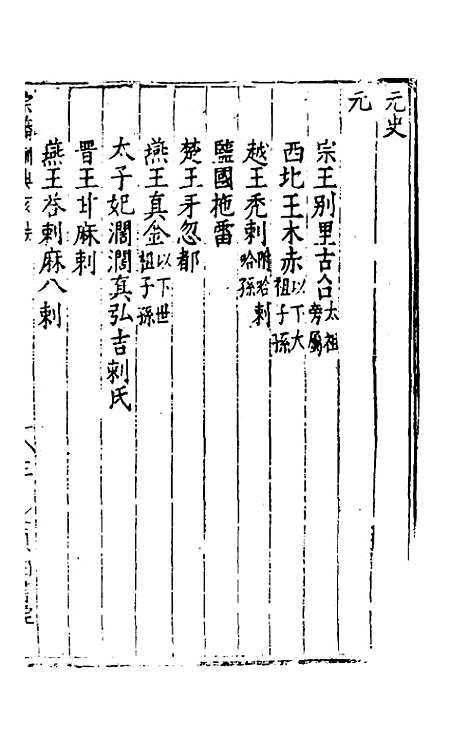 元史
元
宗王别里古台太祖旁屬
西北王木赤以下大祖子孫
越王秃剌附哈剌哈孫
監國拖雷
楚王牙忽都
燕王真金以下世祖子孫
太子妃濶濶真弘吉剌氏
晋王甘麻剌
燕王荅剌麻八剌
宗藩訓典